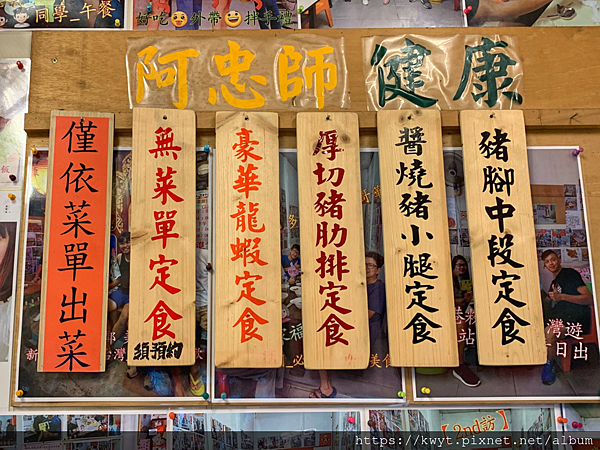 同學_午餐
好吃 外帶 拌辛
阿忠師 健康
僅依菜單出菜
無菜單定食
須預約
豪華龍蝦定食
厚切豬肋排定食
醬燒豬小腿定食
豬腳中段定食
灣遊
日出
【2nd訪】
https://kwyt.pixnet.net/album